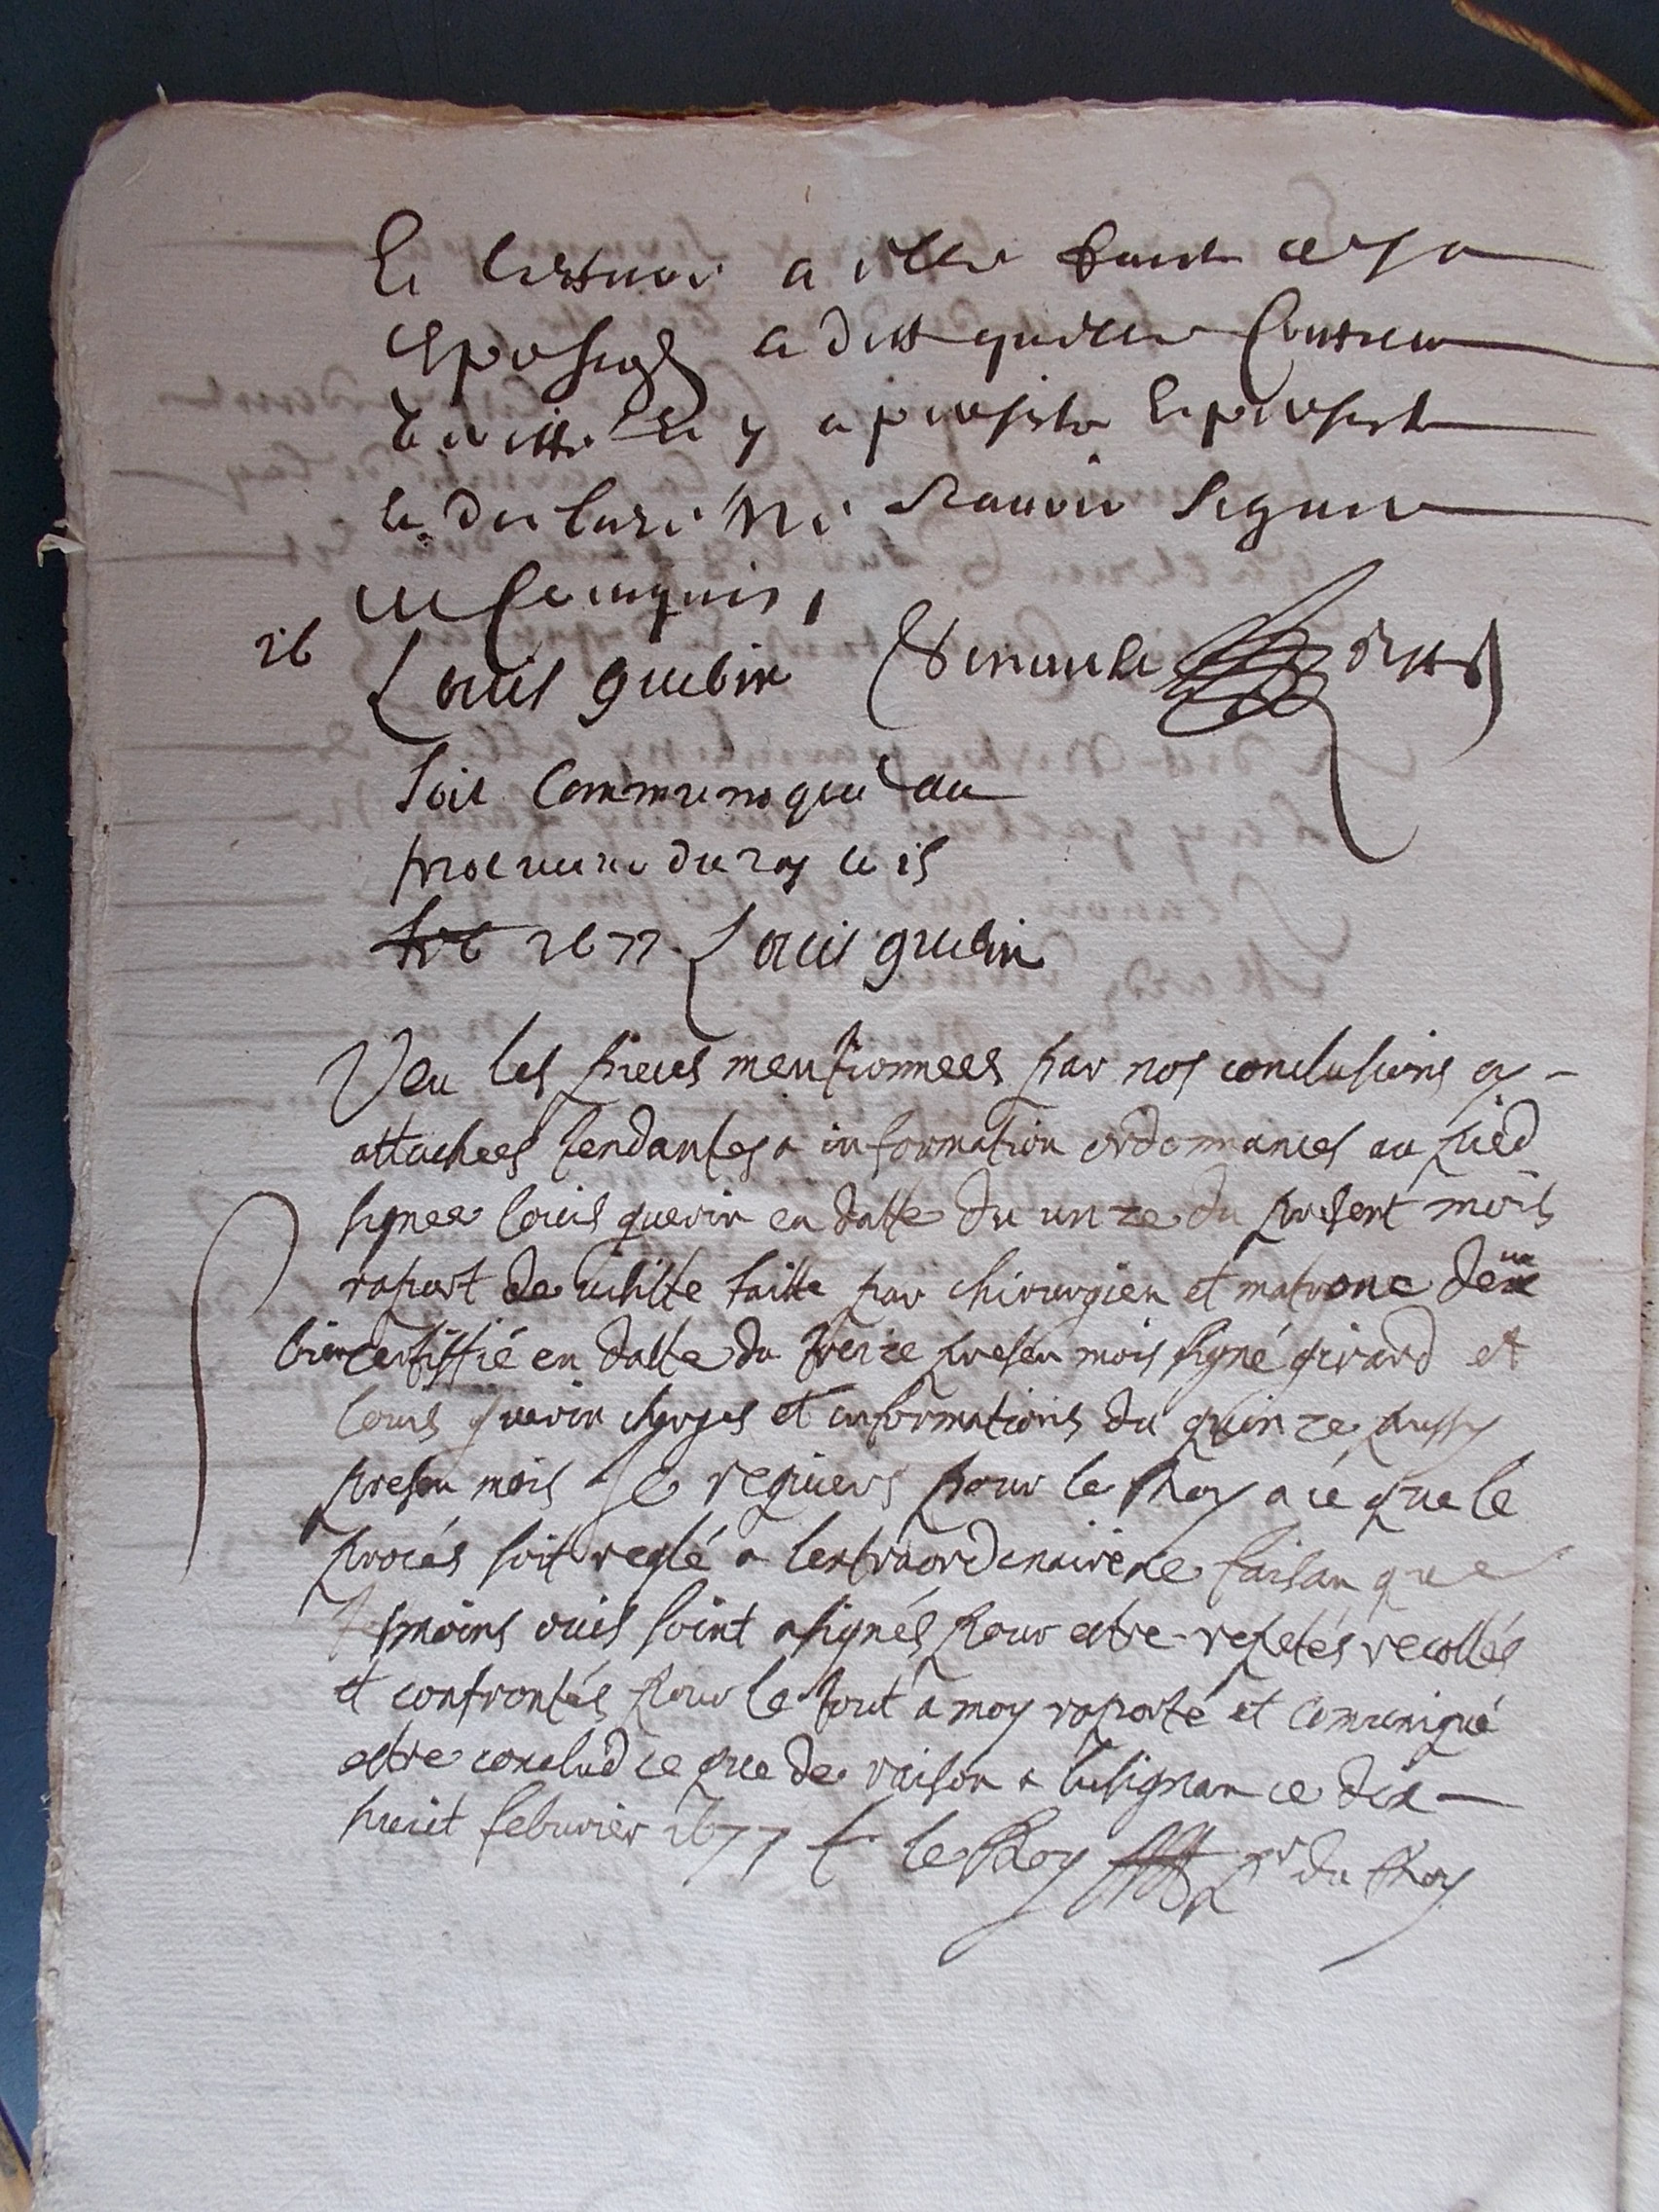 Et lecture a elle faicte de sa
deposion a dict quelle Contien
veritté Et y a persisté Et persiste
et declaré ne scauoir signer
de ce enquise,
16 Louis guerin
Soit Communiqué au
procureur du roy ce 15
feb 1677. Louis guerin
Veu les pieces mentionnees par nos conclusions cy -
attachees tendantes a information ordonnances au pied
signee louis guerin en datte du unze du present mois
raport de visitte faitte par chirurgien et matrone deue
bien certiffié en datte du treize presen mois signé girard et
louis guerin charges et informations du quinze aussy
presen mois Je requiers pour le Roy a ce que le
procés soit reglé a lextraordinaire ce faisan que
tesmoins ouis soint asignés pour estre repetés recollés
et confrontés pour le tout a moy raporté et comuniqué
estre conclud ce que de raison a lusignan ce dix -
huict feburier 1677 le Roy pr du Roy